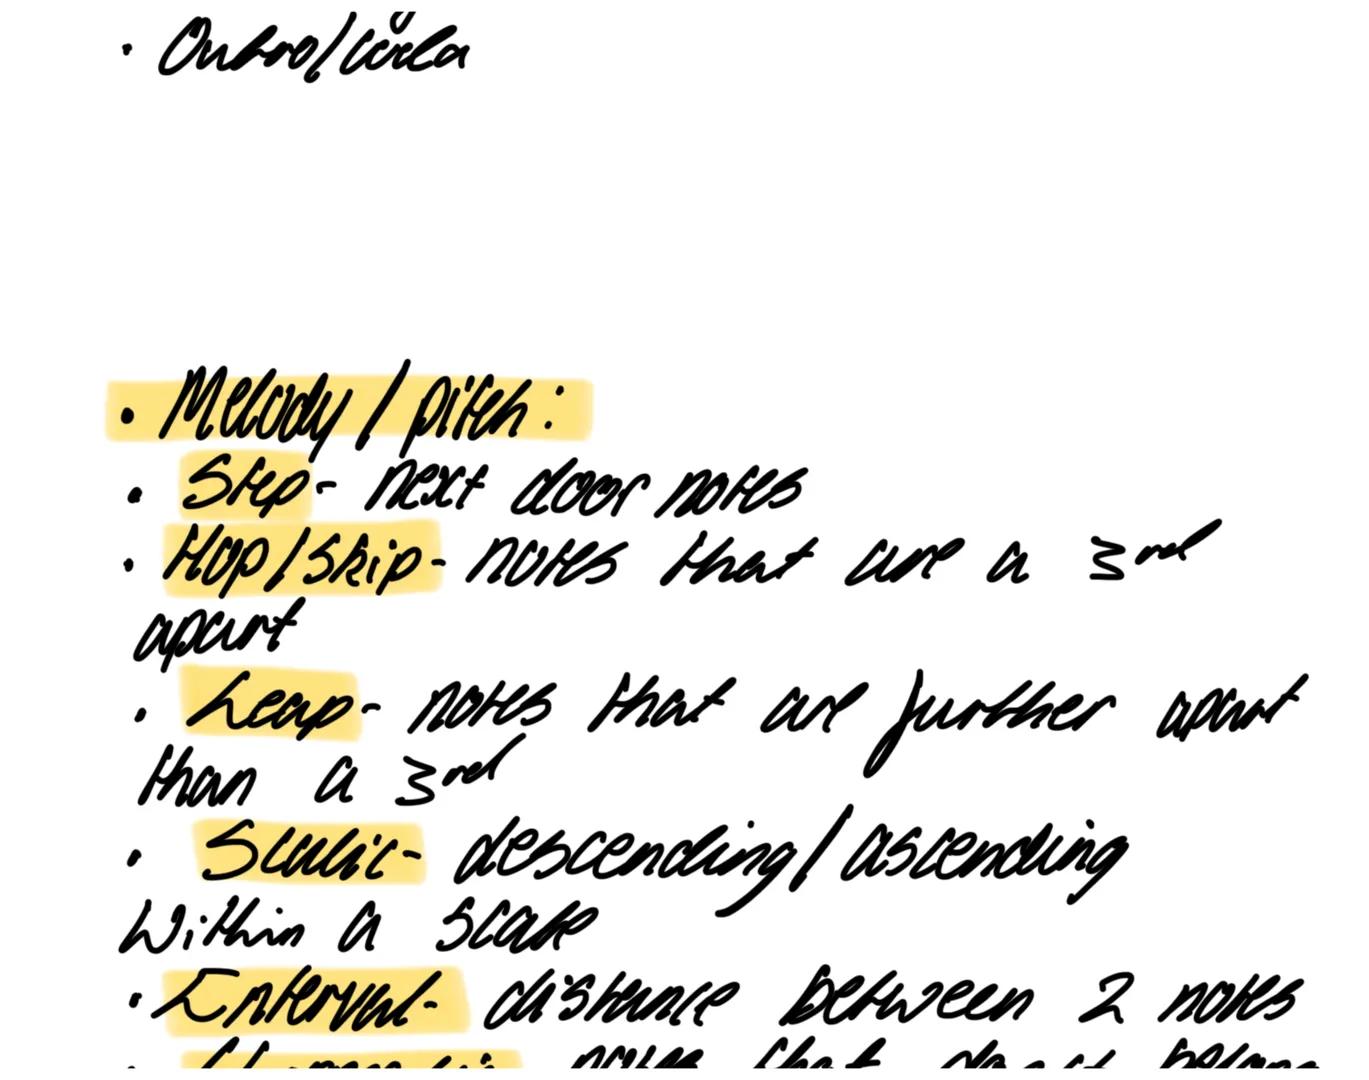 • Outro/coda
• Melody/pitch:
• Step- next door notes
• Hop/Skip- notes that are a 3rd
apart
• Leap- notes that are further apart
than a 3rd
• Scalic- descending/ascending
within a scale
• Interval- distance between 2 notes
• Chromatic- notes that doesn't belong